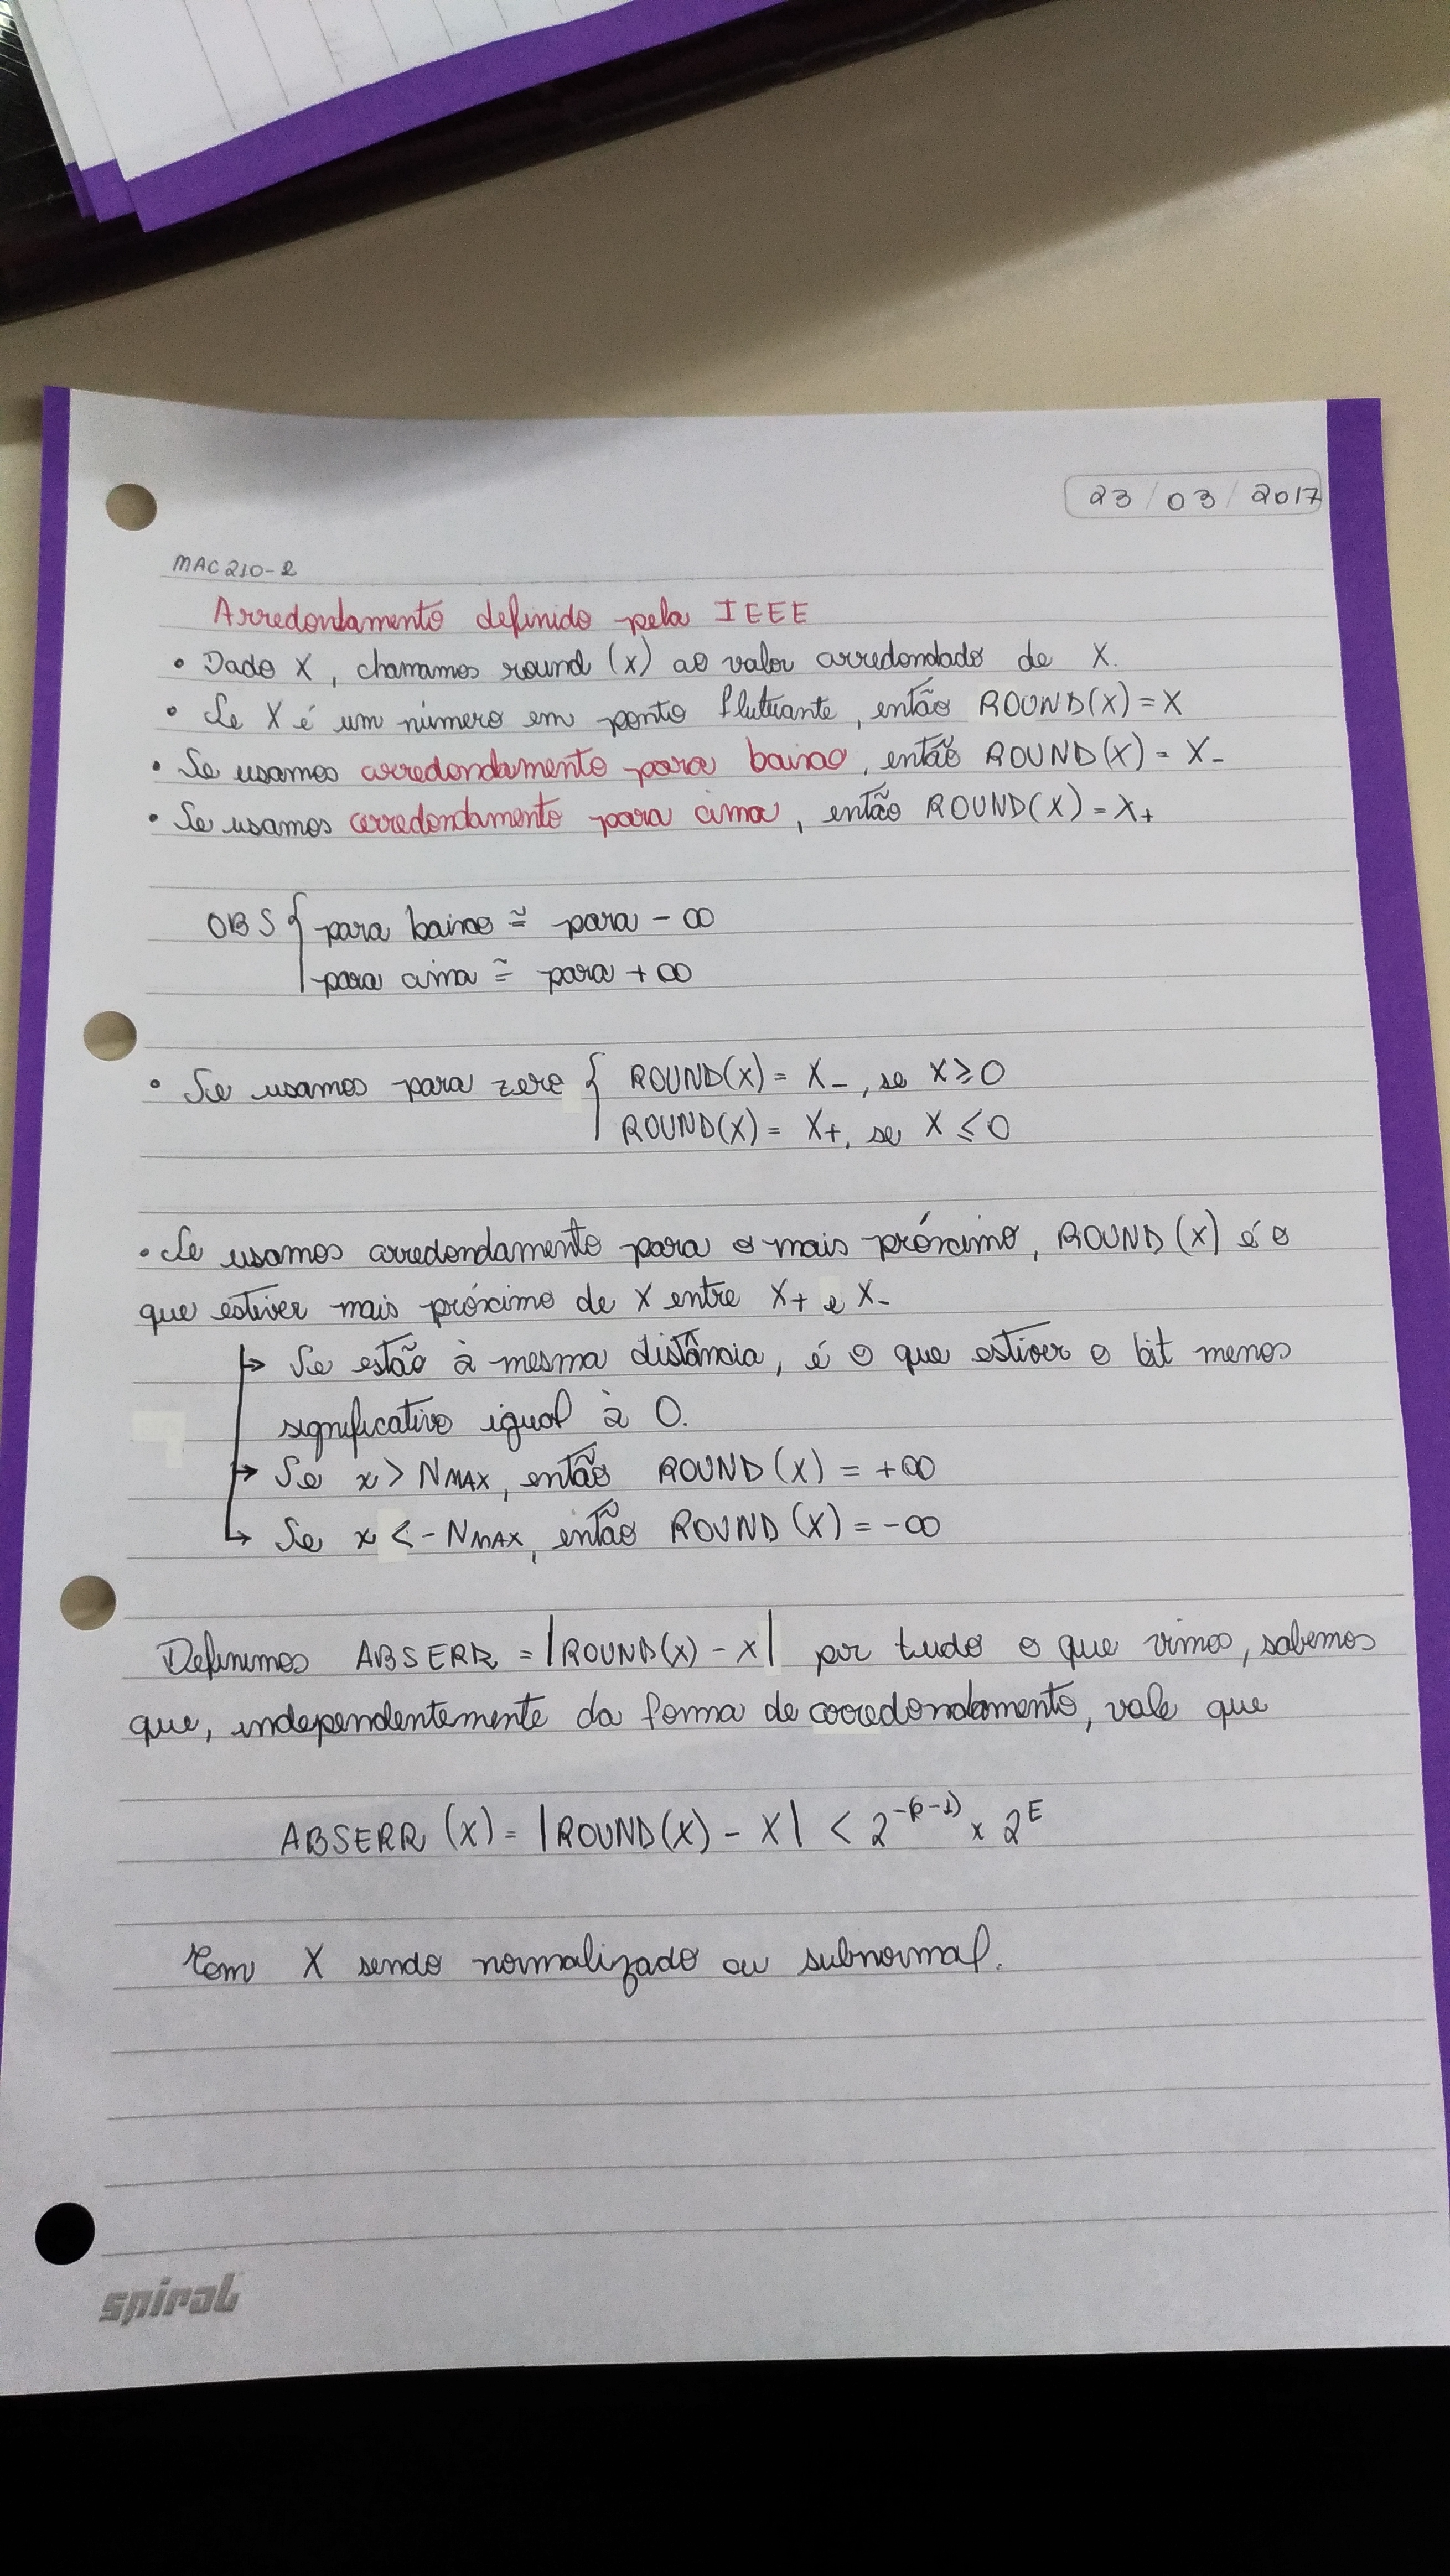 23/03/2017
MAC210-2
Arredondamento definido pela IEEE
• Dado X, chamamos round (x) ao valor arredondado de X.
• Se X é um número em ponto flutuante, então ROUND(X) = X
• Se usamos arredondamento para baixo, então ROUND(X) = X-
• Se usamos arredondamento para cima, então ROUND(X) = X+
OBS { para baixo ≅ para - ∞
para cima ≅ para + ∞
• Se usamos para zero { ROUND(X) = X-, se X ≥ 0
ROUND(X) = X+, se X ≤ 0
• Se usamos arredondamento para o mais próximo, ROUND (X) é o
que estiver mais próximo de X entre X+ e X-
↳ Se estão à mesma distância, é o que estiver o bit menos
significativo igual à 0.
↳ Se x > NMAX, então ROUND (X) = +∞
↳ Se x < - NMAX, então ROUND (X) = -∞
Definimos ABSERR = |ROUND(X) - X| por tudo o que vimos, sabemos
que, independentemente da forma de arredondamento, vale que
ABSERR (X) = |ROUND(X) - X| < 2^-(p-1) x 2^E
Com X sendo normalizado ou subnormal.
spiral